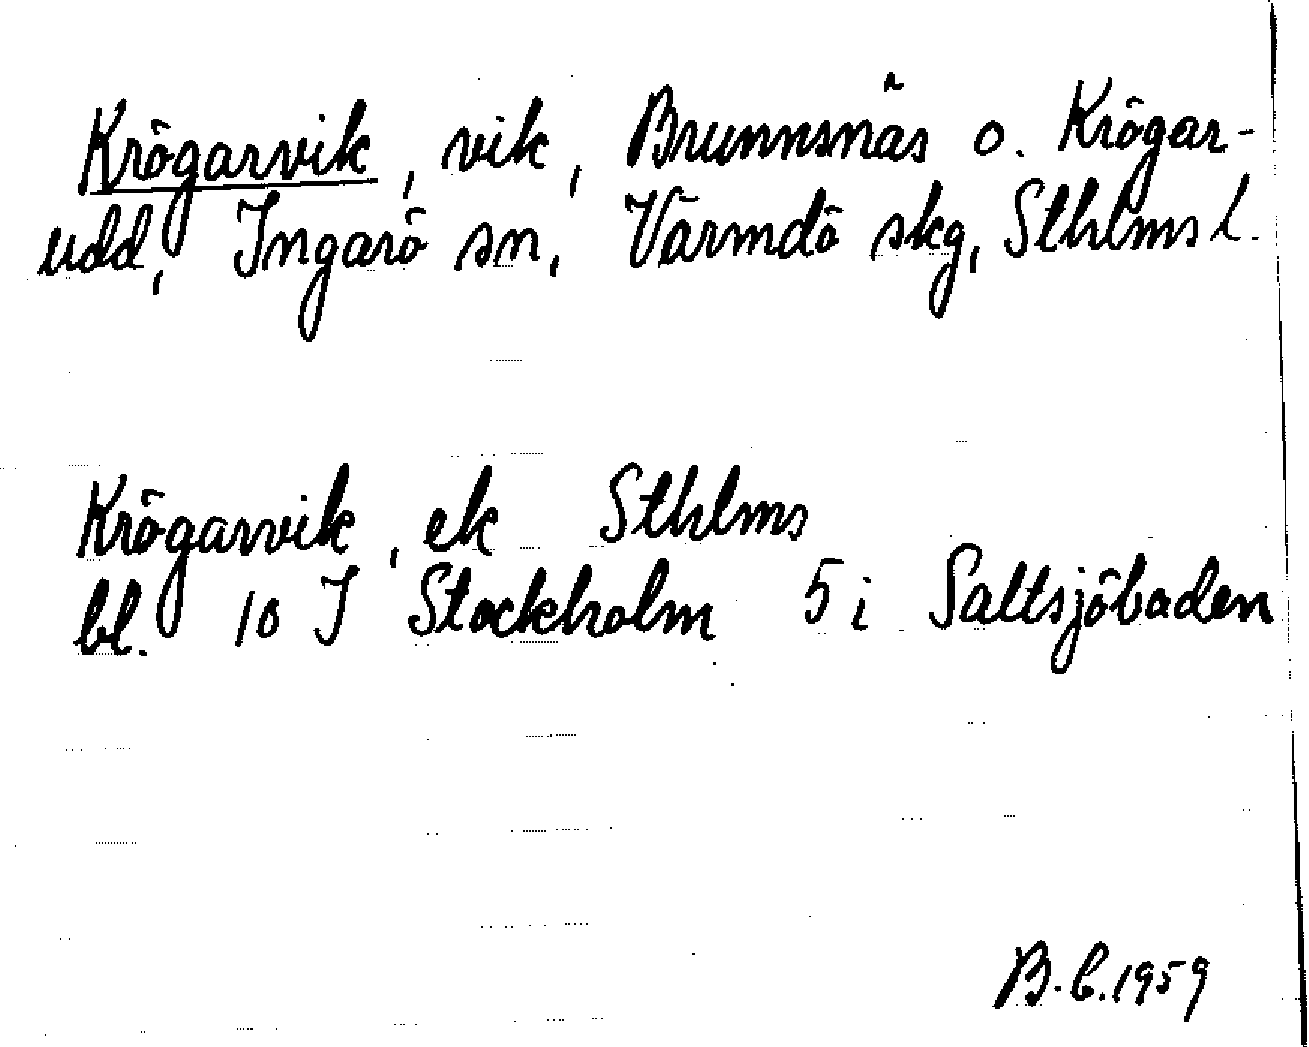 Krögarvik, vik, Brunnsnäs o. Krögar-
udd, Ingarö sn, Värmdö skg, Sthlms l.
Krögarvik, ek Sthlms
bl. 10 I Stockholm 5 i Saltsjöbaden
B.C.1959